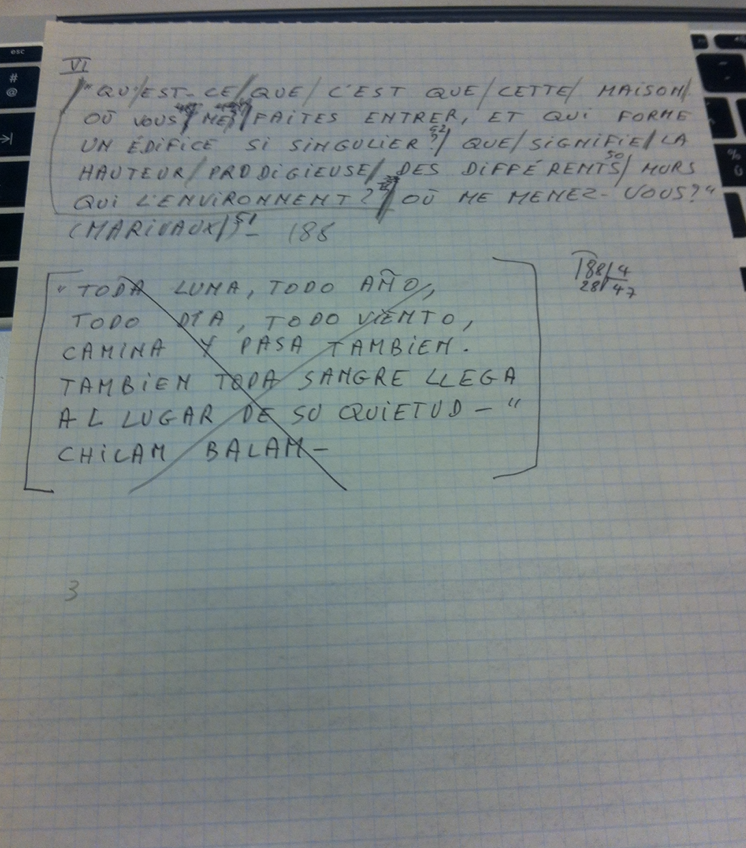 VI
"QU'EST-CE/QUE/C'EST QUE/CETTE/MAISON/
OÙ VOUS/ME/FAITES ENTRER, ET QUI FORME
UN ÉDIFICE SI SINGULIER?/QUE/SIGNIFIE/LA
HAUTEUR/PRODIGIEUSE/DES DIFFÉRENTS/MURS
QUI L'ENVIRONNENT?/OÙ ME MENEZ-VOUS?"
(MARIVAUX/)51- 188
188/4
28/47
"TODA LUMA, TODO AÑO,
TODO DÍA, TODO VIENTO,
CAMINA Y PASA TAMBIEN.
TAMBIEN TODA SANGRE LLEGA
AL LUGAR DE SU QUIETUD-"
CHILAM BALAM-
3
esc
#
@
%